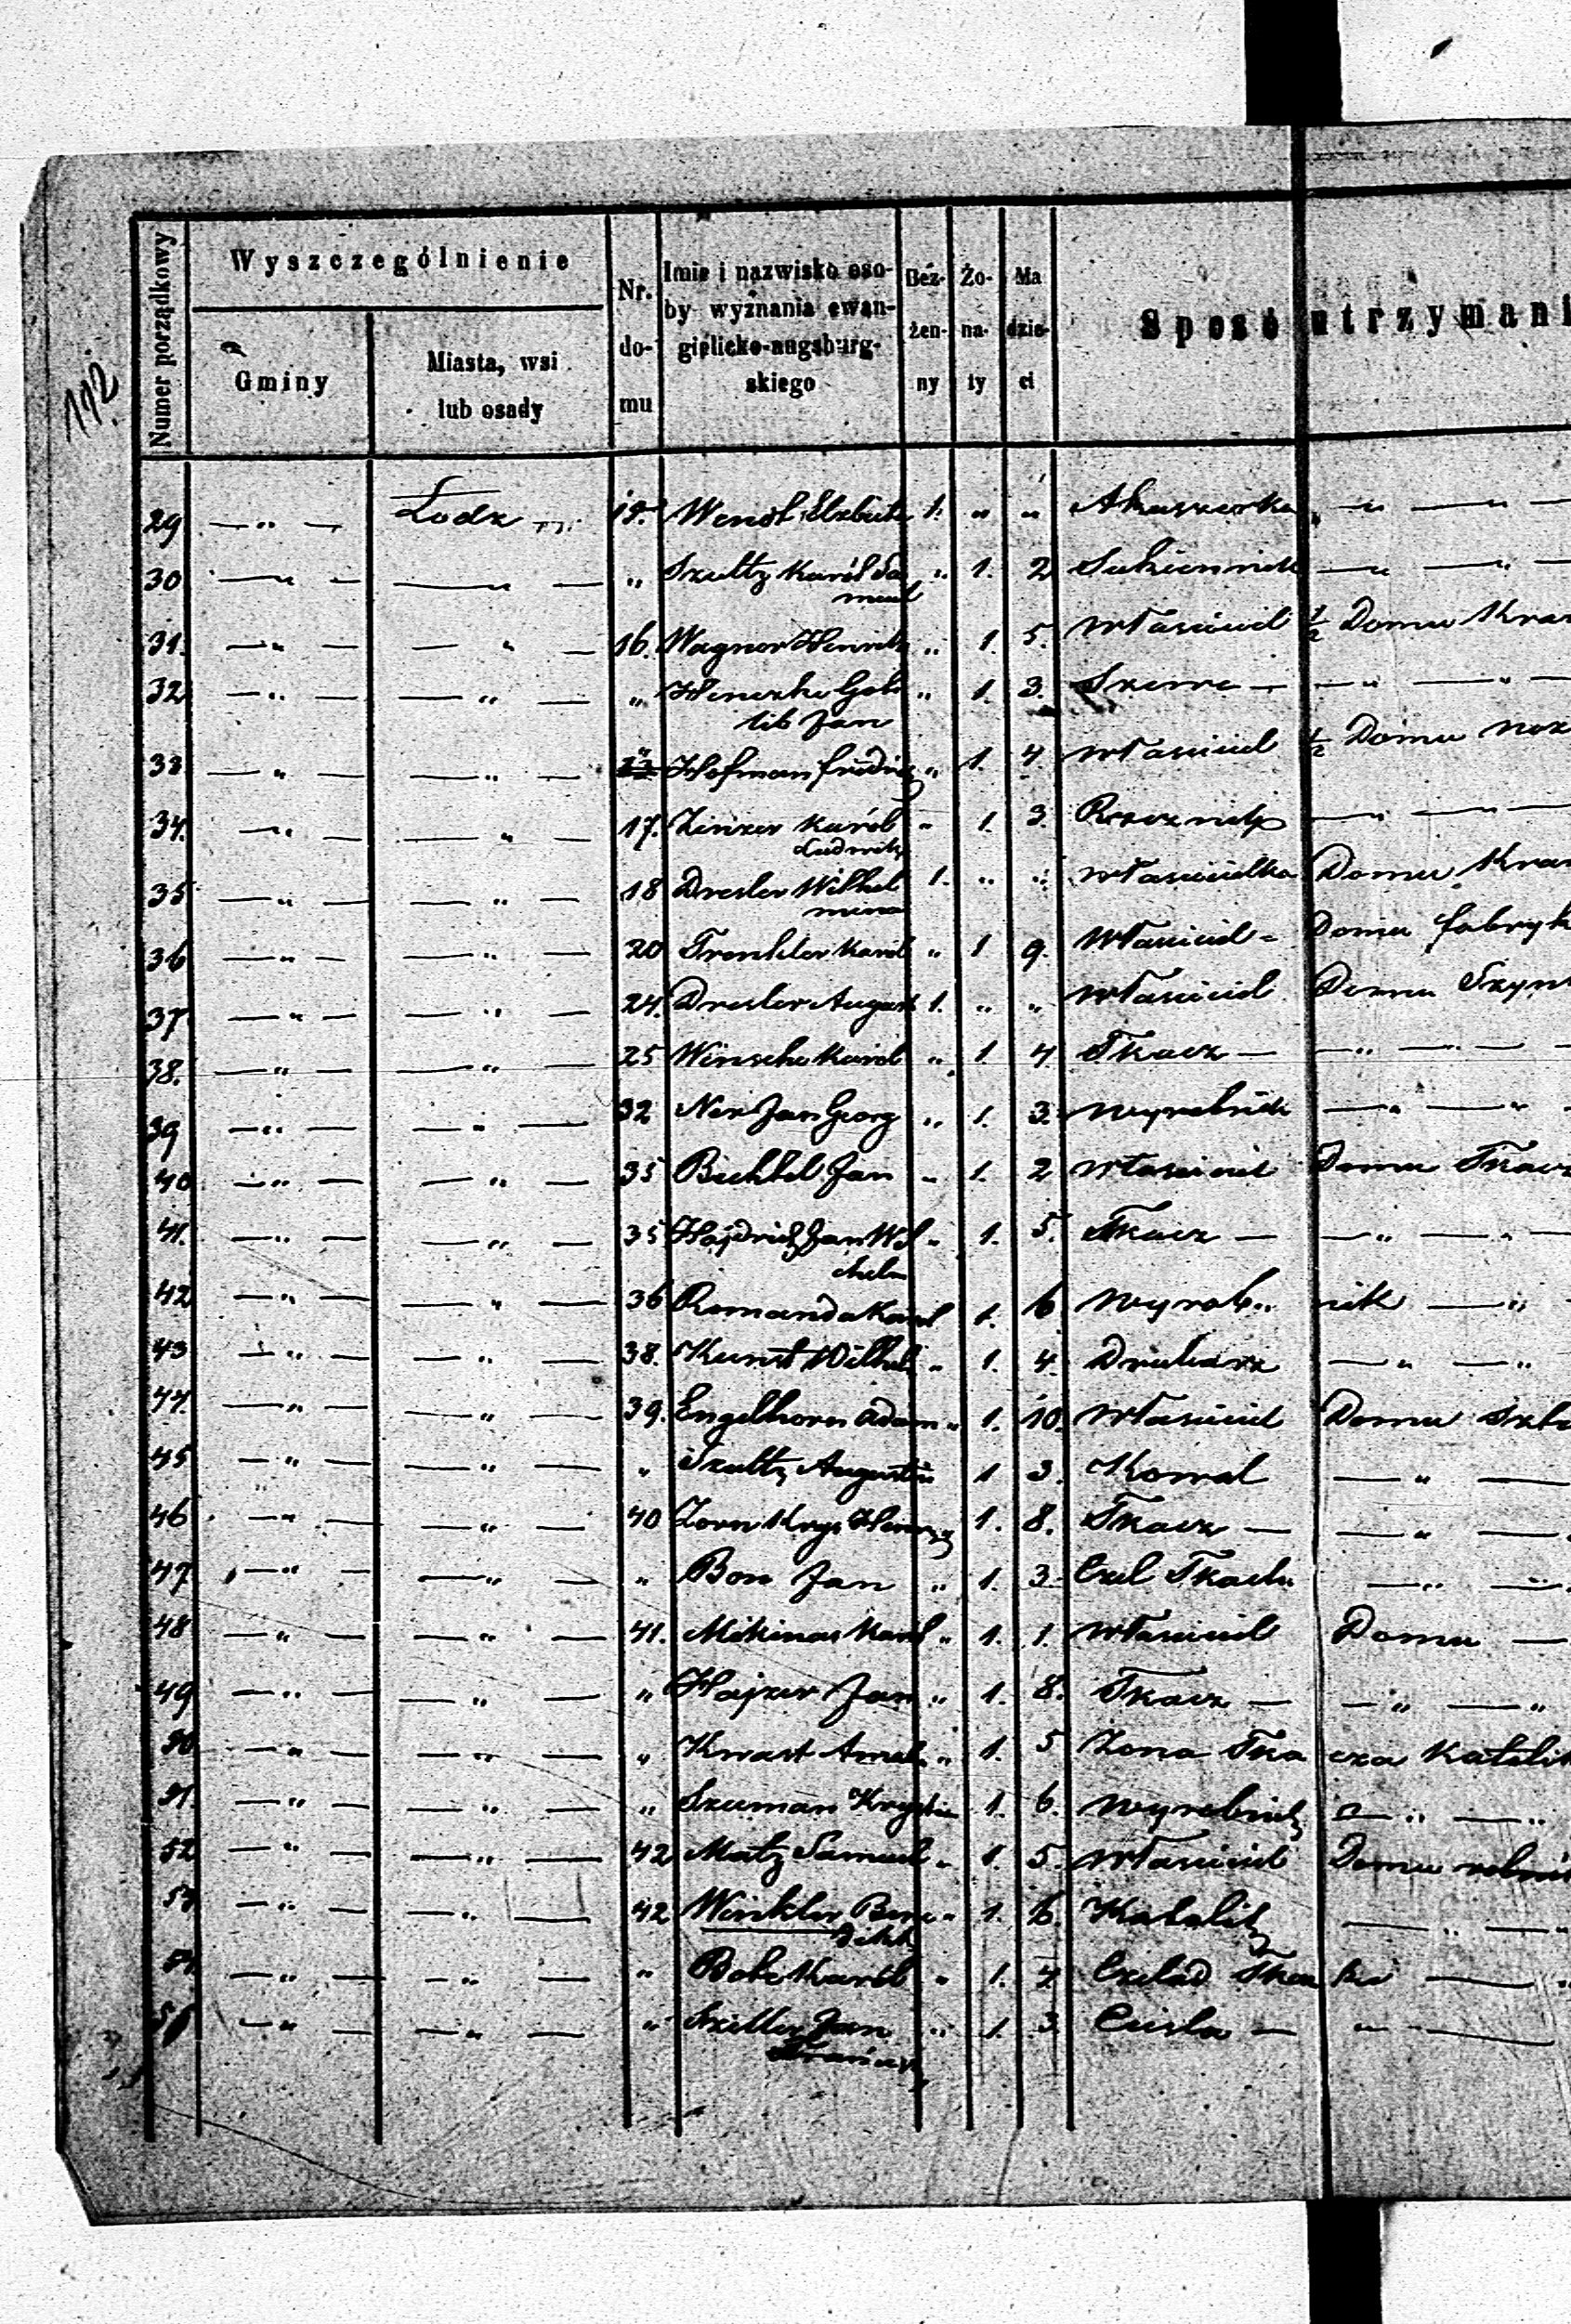 112.
Numer porządkowy
Wyszczególnienie
Gminy
Miasta, wsi
lub osady
Nr.
do-
mu
Imie i nazwisko oso-
by wyznania ewan-
gielicko-augsburg-
skiego
Beż-
żen-
ny
Żo-
na-
ty
Ma
dzie-
ci
Sposó utrzymani
29 —"— Łodz Wendt Elzbieta 1. " " Akuszerka " — " —
30 —"— —"— " Szultz Karól Sa " 1. 2 Sukiennik —"—"—
muel
31. —"— —"— 16. Wagner Henrik " 1. 5. Właściciel ½ Domu Kra
32 —"— —"— " Got " 1. 3. —"—"—
lib Jan
33 —"— —"— Hofman " 1. 4. Właściciel ½ Domu
34. —"— —"— 17. Karól " 1. 3. —"—
Ludwik
35 —"— —"— 18 Dresler Wilhel 1. " " Właścicielka Domu Kra
mina
36 —"— —"— 20 Trenkler Karol " 1 9. Właściciel - Domu fabryk
37 —"— —"— 24. Dresler August 1. " " Właściciel Domu Szyn
38. —"— —"— 25 Winsche Karol " 1 4. Tkacz — —"—
39 —"— —"— 32 Jan Georg " 1. 3. Wyrobnik —"—"
40 —"— —"— 35 Bechtel Jan " 1. 2 Właściciel Domu Tkacz
41. —"— —"— 35 Hajdrich Jan Wil " 1. 5. Tkacz — —"—"—
chelm
42 —"— —"— 36 Karol 1. 6 Wyrob.. nik —"
43 —"— —"— 38. Kunst Wilhel " 1. 4. Drukarz —"—"
44. —"— —"— 39. Engelhorn Adam " 1. 10. Właściciel Domu
45 —"— —"— " Szultz Augustin 1 3. Kowal —"—
46 —"— —"— 40 Zorn Krys 1. 8. Tkacz — —"—
47 —"— —"— " Bon Jan " 1. 3. Czel Tkacki —"—
48 —"— —"— 41. Karol " 1. 1. Właściciel Domu —
49 —"— —"— " Hajzer Jan " 1. 8. Tkacz — —"—"
50 —"— —"— " Kwast Amal " 1. 5 Zona Tka cza Katolik
51. —"— —"— " Szuman Krystia 1. 6. Wyrobnik —"—"
52 —"— —"— 42 Matz Samuel " 1. 5. Właściciel Domu
—"— —"— 42 Winkler Bene " 1. 6. Katolik —"—
dikt
—"— —"— " Karól " 1. 4 Czelad Tkac ki —
—"— —"— " Jan " 1. 3. Ciesla — " —